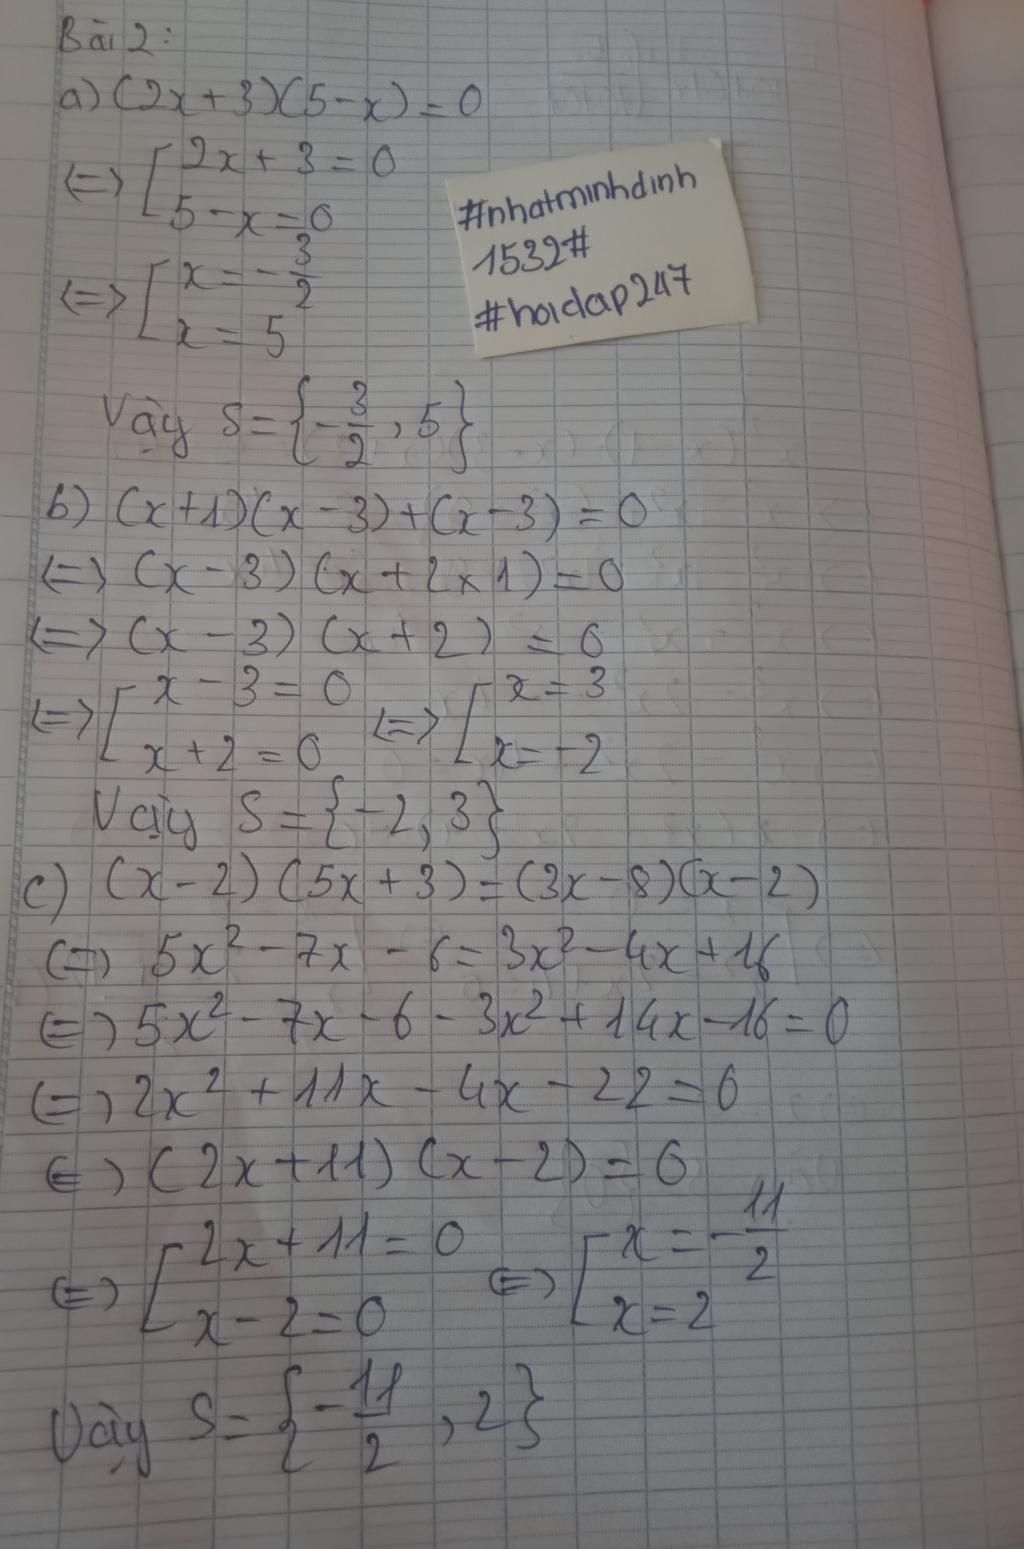 Bài 2:
a) (2x+3)(5-x)=0
<=> [ 2x+3=0
5-x=0
<=> [ x=-3/2
x=5
#nhatminhdinh
1532#
#hoidap247
Vậy S={-3/2, 5}
b) (x+1)(x-3)+(x-3)=0
<=> (x-3)(x+2x1)=0
<=> (x-3)(x+2)=0
<=> [ x-3=0 <=> [ x=3
x+2=0 x=-2
Vậy S={-2, 3}
c) (x-2)(5x+3)=(3x-8)(x-2)
<=> 5x²-7x-6=3x²-4x+16
<=> 5x²-7x-6-3x²+14x-16=0
<=> 2x²+11x-4x-22=0
<=> (2x+11)(x-2)=0
<=> [ 2x+11=0 <=> [ x=-11/2
x-2=0 x=2
Vậy S={-11/2, 2}